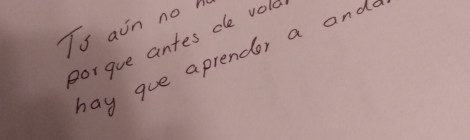 Tú aún no
porque antes de
hay que aprender a